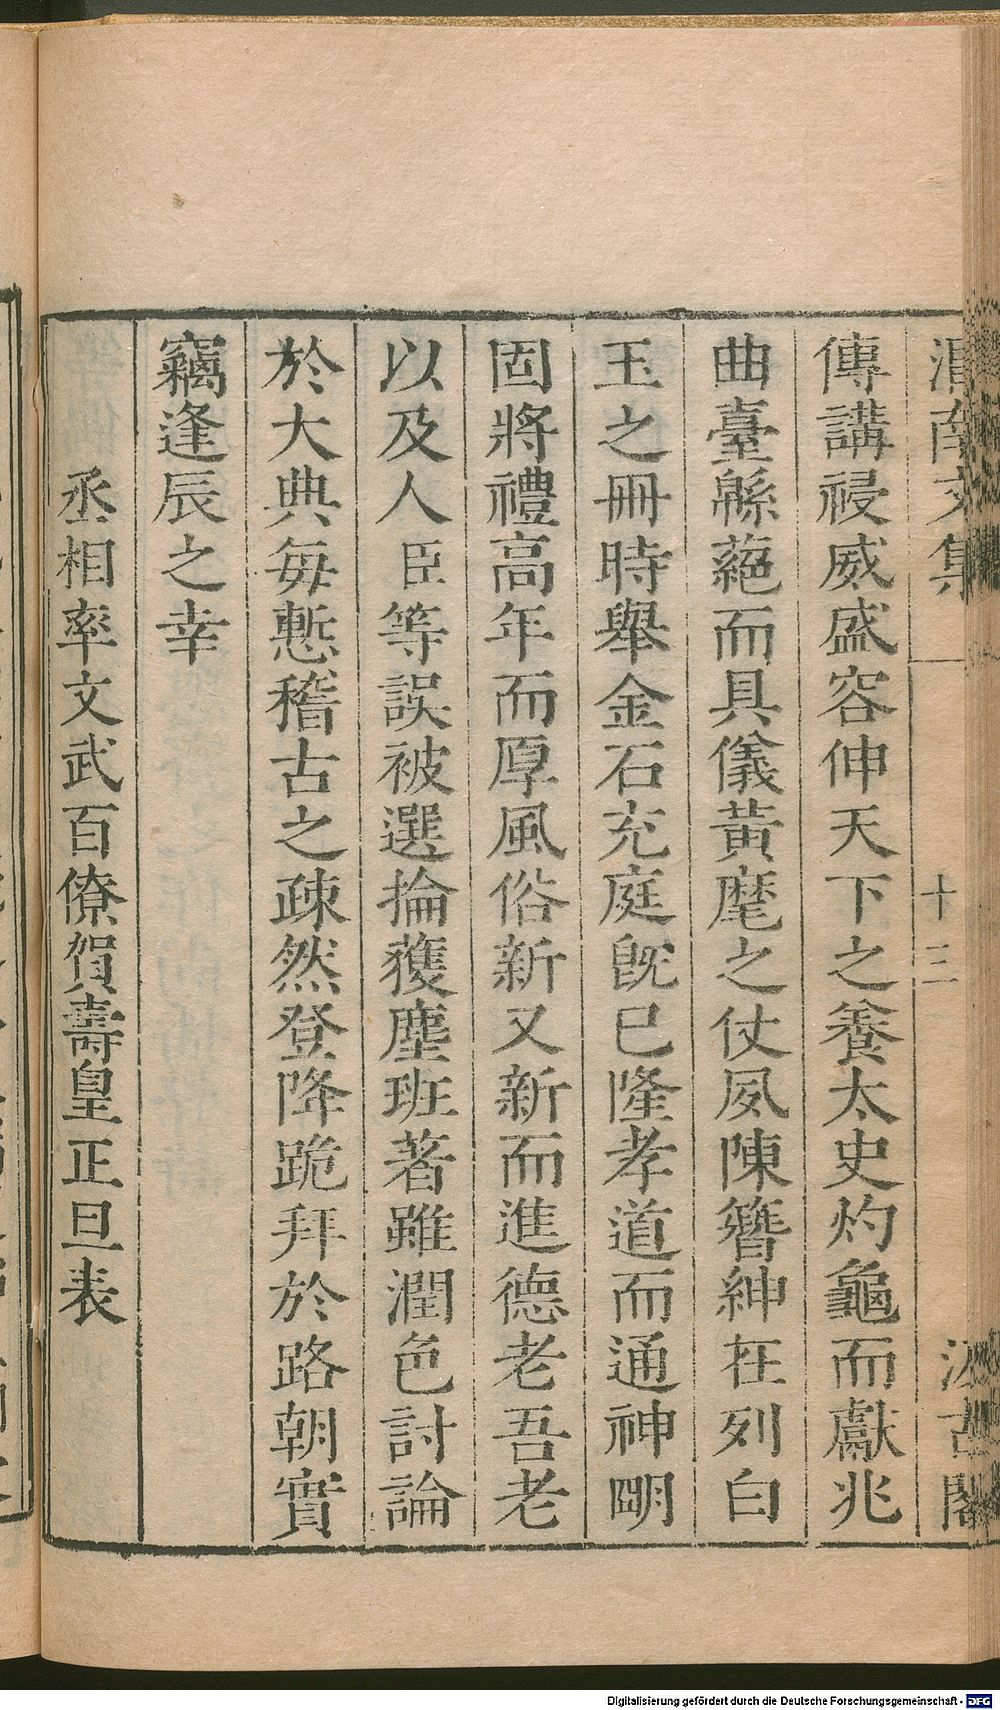 渭南文集 十三 汲古閣
傳講祲威盛容伸天下之養太史灼龜而獻兆
曲臺緜蕝而具儀黃麾之仗夙陳簪紳在列白
玉之冊時舉金石充庭旣已隆孝道而通神明
固將禮高年而厚風俗新又新而進德老吾老
以及人臣等誤被選掄獲塵班著雖潤色討論
於大典每慙稽古之疎然登降跪拜於路朝實
竊逢辰之幸
丞相率文武百僚賀壽皇正旦表
Digitalisierung gefördert durch die Deutsche Forschungsgemeinschaft - DFG